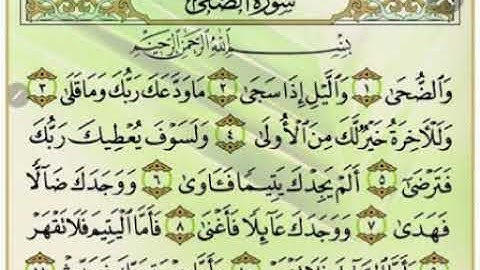 سُورَةُ الضُّحَىٰ
بِسْمِ اللَّهِ الرَّحْمَٰنِ الرَّحِيمِ
وَالضُّحَىٰ ١ وَاللَّيْلِ إِذَا سَجَىٰ ٢ مَا وَدَّعَكَ رَبُّكَ وَمَا قَلَىٰ ٣
وَلَلْآخِرَةُ خَيْرٌ لَّكَ مِنَ الْأُولَىٰ ٤ وَلَسَوْفَ يُعْطِيكَ رَبُّكَ
فَتَرْضَىٰ ٥ أَلَمْ يَجِدْكَ يَتِيمًا فَـَٔاوَىٰ ٦ وَوَجَدَكَ ضَالًّا
فَهَدَىٰ ٧ وَوَجَدَكَ عَائِلًا فَأَغْنَىٰ ٨ فَأَمَّا الْيَتِيمَ فَلَا تَقْهَرْ